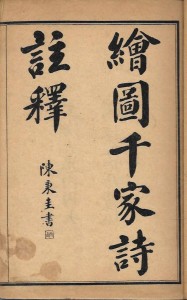 繪圖千家詩
註釋
陳秉圭書